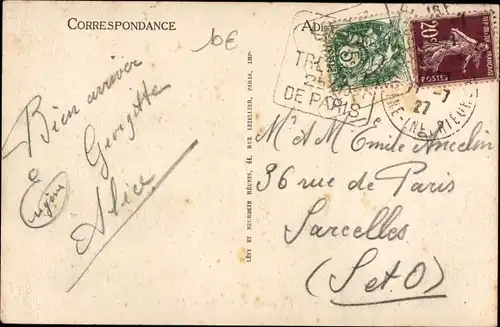 CORRESPONDANCE
10€
Bien arriver
Georgette
Eugène
Alice
LÉVY ET NEURDEIN RÉUNIS, 44, RUE LETELLIER, PARIS, IMP.
DE PARIS
5c
20c
REPUBLIQUE FRANÇAISE
POSTES
27
M & M Emile Ancelin
36 rue de Paris
Sarcelles
(S et O)